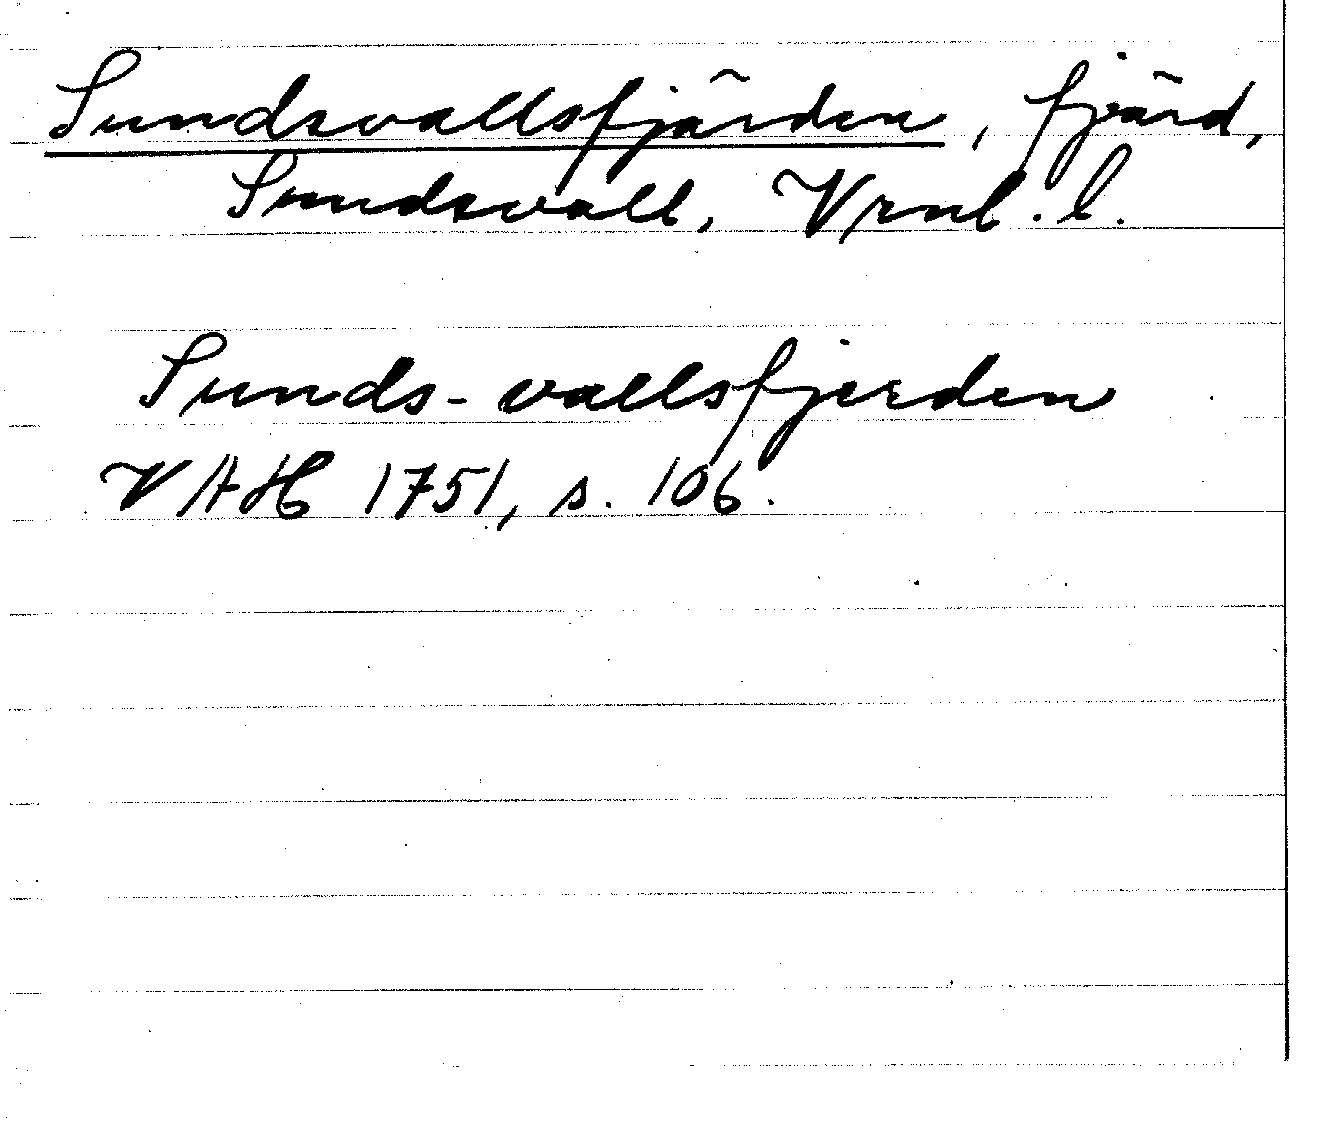 Sundsvallsfjärden, fjärd,
Sundsvall, Vrnl. l.
Sunds-vallsfjerden
VAH 1751, s. 106.